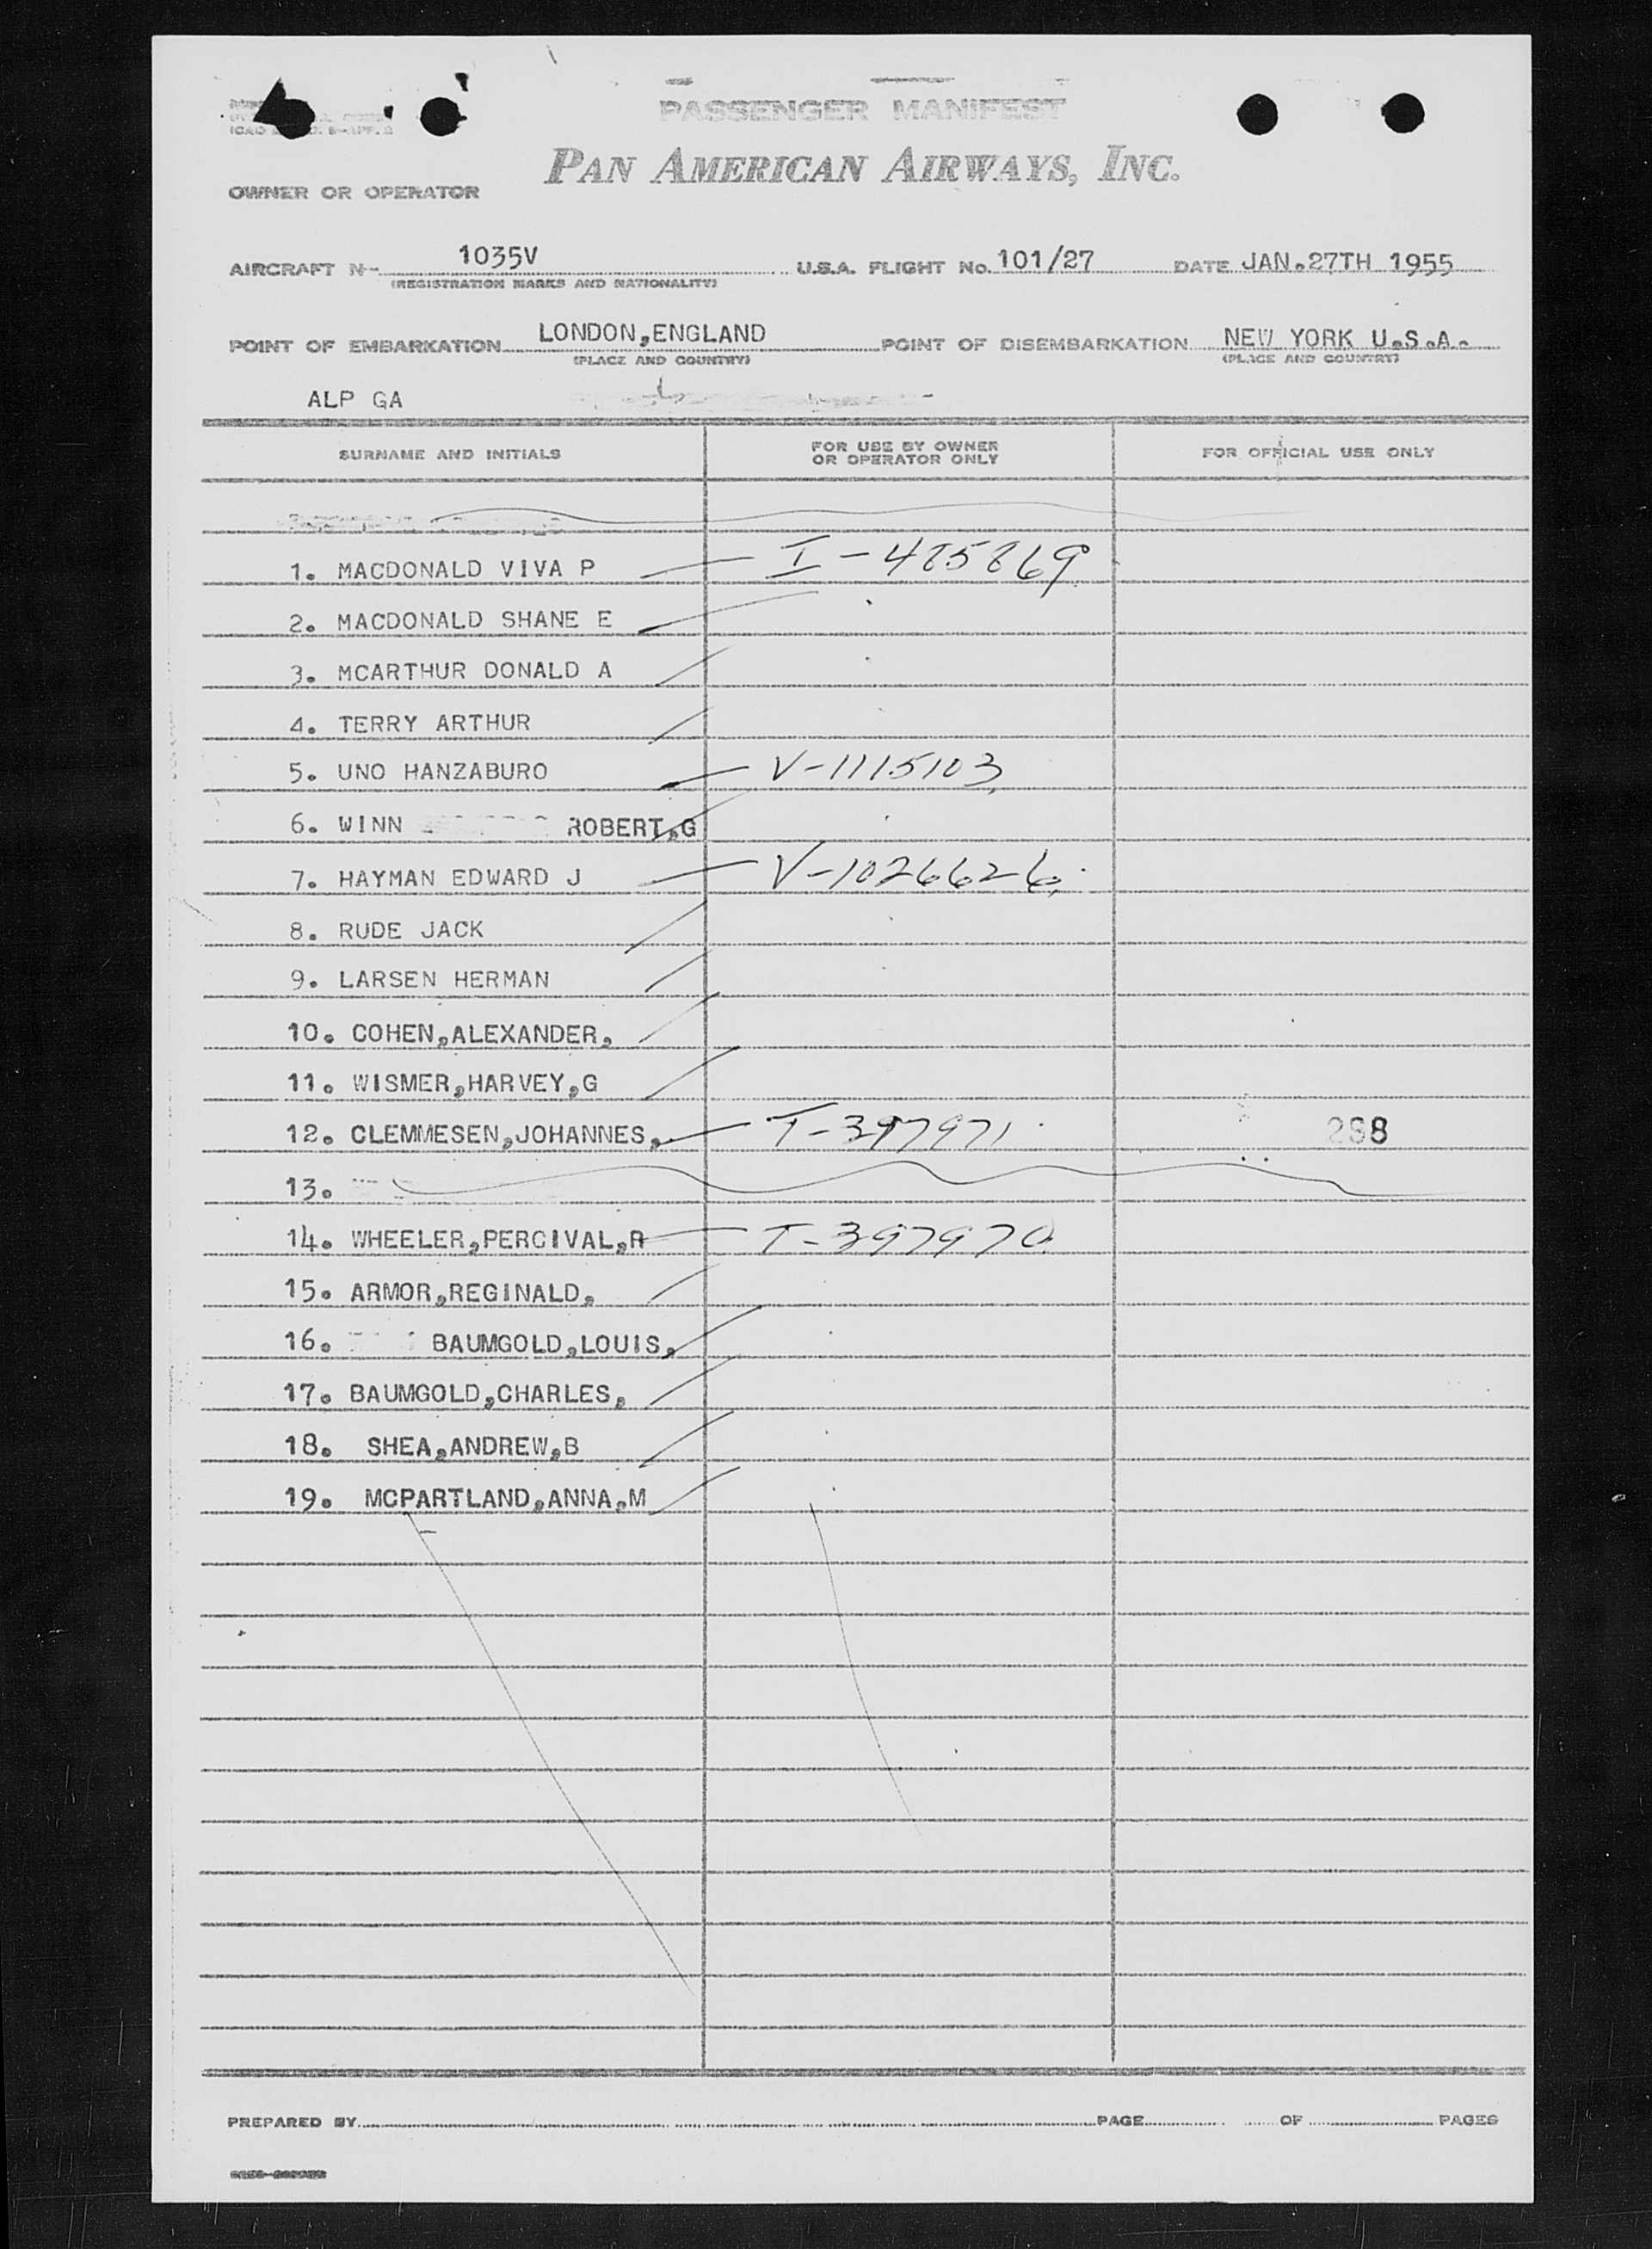 PASSENGER MANIFEST
PAN AMERICAN AIRWAYS, INC.
OWNER OR OPERATOR
AIRCRAFT N- 1035V U.S.A. FLIGHT No. 101/27 DATE JAN.27TH 1955
(REGISTRATION MARKS AND NATIONALITY)
POINT OF EMBARKATION LONDON,ENGLAND POINT OF DISEMBARKATION NEW YORK U.S.A.
(PLACE AND COUNTRY) (PLACE AND COUNTRY)
ALP GA
SURNAME AND INITIALS FOR USE BY OWNER OR OPERATOR ONLY FOR OFFICIAL USE ONLY
1. MACDONALD VIVA P I-485869
2. MACDONALD SHANE E
3. MCARTHUR DONALD A
4. TERRY ARTHUR
5. UNO HANZABURO V-1115103
6. WINN ROBERT,G
7. HAYMAN EDWARD J V-1026626
8. RUDE JACK
9. LARSEN HERMAN
10. COHEN,ALEXANDER,
11. WISMER,HARVEY,G
12. CLEMMESEN,JOHANNES, T-397971 288
13.
14. WHEELER,PERCIVAL,R T-397970
15. ARMOR,REGINALD,
16. BAUMGOLD,LOUIS,
17. BAUMGOLD,CHARLES,
18. SHEA,ANDREW,B
19. MCPARTLAND,ANNA,M
PREPARED BY PAGE OF PAGES